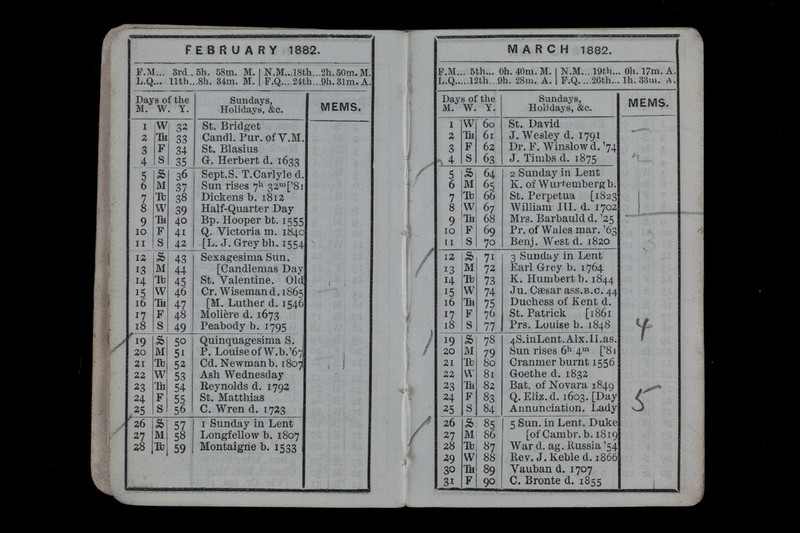 FEBRUARY 1882.
F.M... 3rd . 5h. 58m. M. | N.M...18th...2h.50m.M.
L.Q... 11th...8h. 34m. M. | F.Q...24th...9h.31m.A.
Days of the Sundays, MEMS.
M. W. Y. Holidays, &c.
1 W 32 St. Bridget
2 Th 33 Candl. Pur. of V.M.
3 F 34 St. Blasius
4 S 35 G. Herbert d. 1633
5 S 36 Sept.S. T.Carlyle d.
6 M 37 Sun rises 7h 32m['81
7 Tu 38 Dickens b. 1812
8 W 39 Half-Quarter Day
9 Th 40 Bp. Hooper bt. 1555
10 F 41 Q. Victoria m. 1840
11 S 42 [L. J. Grey bh. 1554
12 S 43 Sexagesima Sun.
13 M 44 [Candlemas Day
14 Tu 45 St. Valentine. Old
15 W 46 Cr. Wiseman d. 1865
16 Th 47 [M. Luther d. 1546
17 F 48 Molière d. 1673
18 S 49 Peabody b. 1795
19 S 50 Quinquagesima S.
20 M 51 P. Louise of W.b.'67
21 Tu 52 Cd. Newman b. 1807
22 W 53 Ash Wednesday
23 Th 54 Reynolds d. 1792
24 F 55 St. Matthias
25 S 56 C. Wren d. 1723
26 S 57 1 Sunday in Lent
27 M 58 Longfellow b. 1807
28 Tu 59 Montaigne b. 1533
MARCH 1882.
F.M... 5th... 0h. 40m. M. | N.M... 19th... 0h. 17m. A.
L.Q.....12th.. 9h. 28m. A. | F.Q...26th... 1h. 33m. A.
Days of the Sundays, MEMS.
M. W. Y. Holidays, &c.
1 W 60 St. David
2 Th 61 J. Wesley d. 1791
3 F 62 Dr. F. Winslow d. '74
4 S 63 J. Timbs d. 1875
5 S 64 2 Sunday in Lent
6 M 65 K. of Wurtemberg b.
7 Tu 66 St. Perpetua [1823
8 W 67 William III. d. 1702
9 Th 68 Mrs. Barbauld d. '25
10 F 69 Pr. of Wales mar. '63
11 S 70 Benj. West d. 1820
12 S 71 3 Sunday in Lent
13 M 72 Earl Grey b. 1764
14 Tu 73 K. Humbert b. 1844
15 W 74 Ju. Cæsar ass. B.C. 44
16 Th 75 Duchess of Kent d.
17 F 76 St. Patrick [1861
18 S 77 Prs. Louise b. 1848
4
19 S 78 4S.inLent.Alx.II.as.
20 M 79 Sun rises 6h 4m ['81
21 Tu 80 Cranmer burnt 1556
22 W 81 Goethe d. 1832
23 Th 82 Bat. of Novara 1849
24 F 83 Q. Eliz. d. 1603. [Day
25 S 84 Annunciation. Lady
5
26 S 85 5 Sun. in Lent. Duke
27 M 86 [of Cambr. b. 1819
28 Tu 87 War d. ag. Russia '54
29 W 88 Rev. J. Keble d. 1866
30 Th 89 Vauban d. 1707
31 F 90 C. Bronte d. 1855